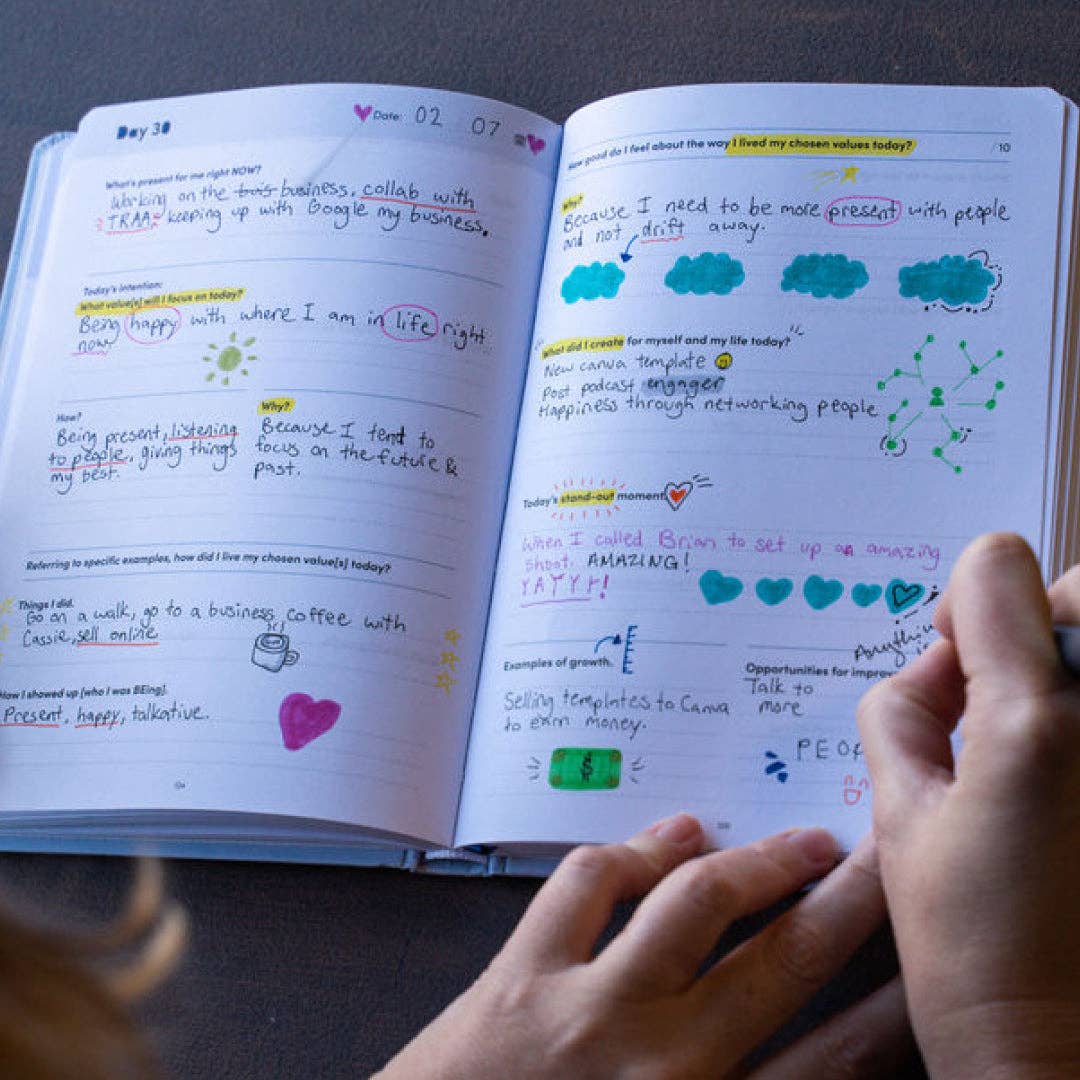 Day 30
Date: 02 07
What's present for me right NOW?
Working on the business, collab with
TRAA, keeping up with Google my business.
Today's intention:
What value[s] will I focus on today?
Being happy with where I am in life right
now
How?
Being present, listening
to people, giving things
my best.
Why?
Because I tend to
focus on the future &
past.
Referring to specific examples, how did I live my chosen value[s] today?
Things I did.
Go on a walk, go to a business, coffee with
Cassie, sell online
How I showed up [who I was BEing].
Present, happy, talkative.
How good do I feel about the way I lived my chosen values today? /10
Why?
Because I need to be more present with people
and not drift away.
What did I create for myself and my life today?
New canva template
Post podcast engager
Happiness through networking people
Today's stand-out moment
When I called Brian to set up an amazing
shoot. AMAZING!
YAYYY!
Examples of growth.
Selling templates to Canva
to earn money.
$
Opportunities for
Talk to
more